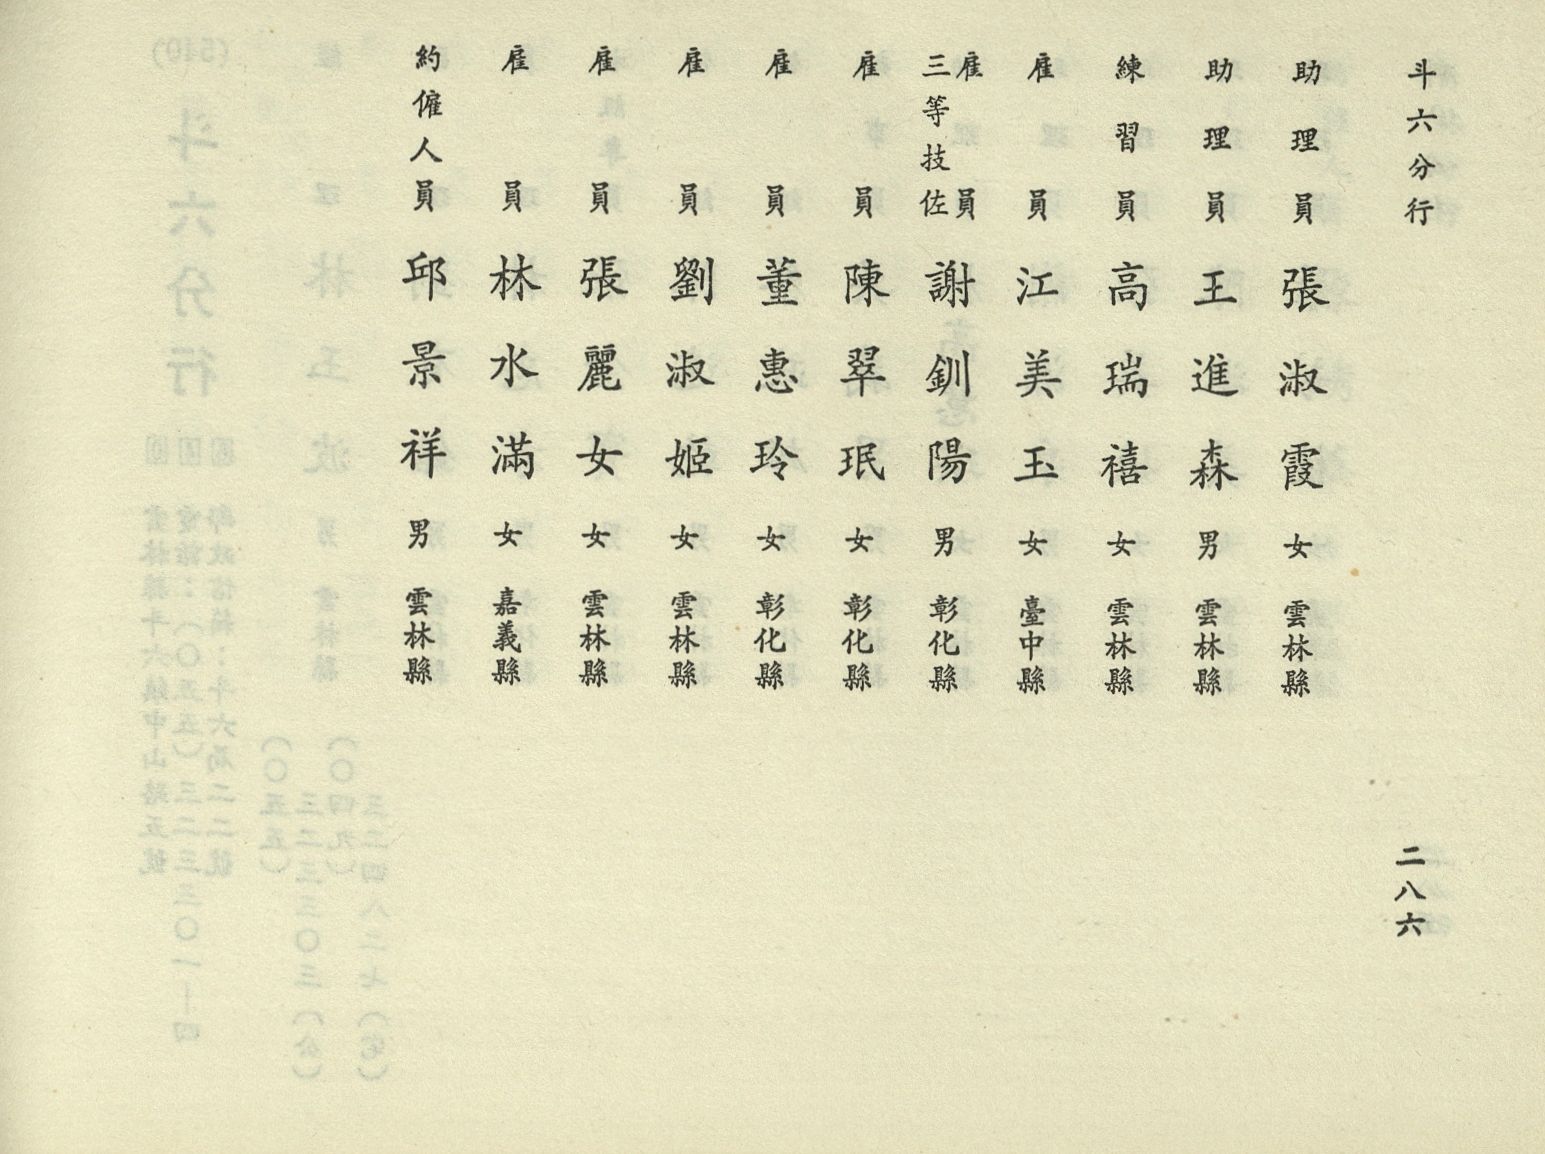 斗六分行
二八六
助理員 張淑霞 女 雲林縣
助理員 王進森 男 雲林縣
練習員 高瑞禧 女 雲林縣
雇員 江美玉 女 臺中縣
雇員 三等技佐 謝釧陽 男 彰化縣
雇員 陳翠珉 女 彰化縣
雇員 董惠玲 女 彰化縣
雇員 劉淑姬 女 雲林縣
雇員 張麗女 女 雲林縣
雇員 林水滿 女 嘉義縣
約僱人員 邱景祥 男 雲林縣